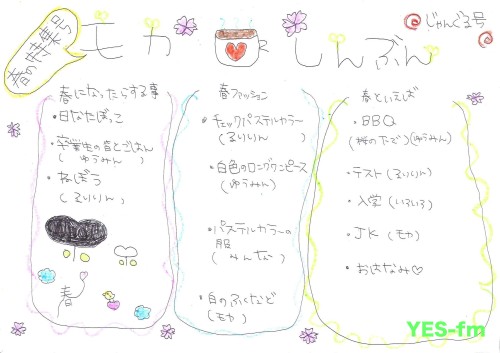 春の特集号
モカしんぶん
じゃんぐる号
春になったらする事
・日なたぼっこ
・卒業生の皆とごはん
(ゆうみん)
・ねぼう
(るいりん)
春
春ファッション
・チェックパステルカラー
(るいりん)
・白色のロングワンピース
(ゆうみん)
・パステルカラーの
服
(みんな)
・白のふくなど
(モカ)
春といえば
・BBQ
(桜の下で)(ゆうみん)
・テスト(るいりん)
・入学(いろいろ)
・JK(モカ)
・おはなみ♡
YES-fm